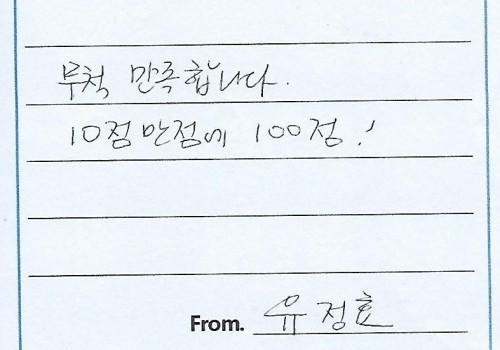 무척 만족합니다.
10점 만점에 100점!
From. 유정효